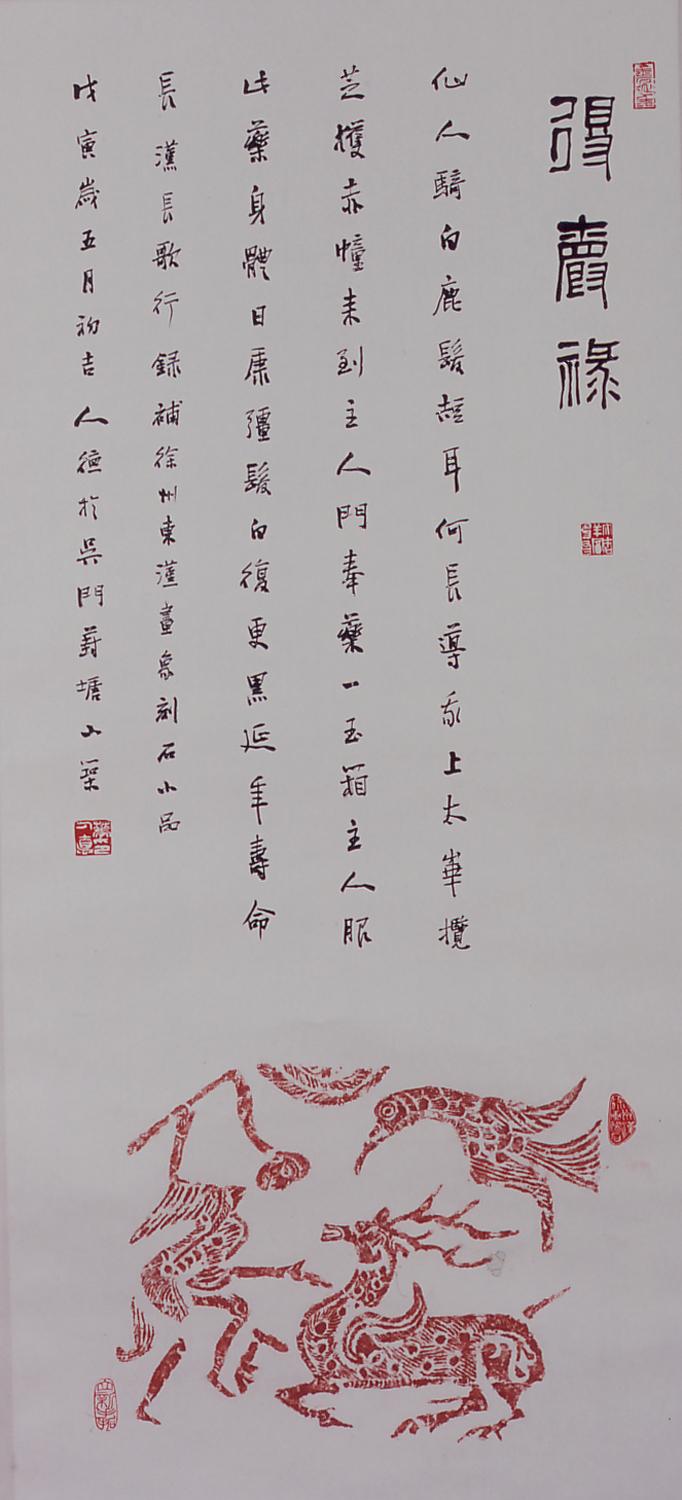 得壽祿
仙人騎白鹿髮短耳何長導我上太華攬
芝獲赤幢来到主人門奉藥一玉箱主人服
此藥身體日康彊髮白復更黑延年壽命
長 漢長歌行録補徐州東漢畫象刻石小品
戊寅歲五月初吉 人德於吳門葑塘小築